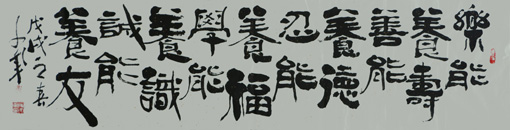 樂能
養壽
善能
養德
忍能
養福
學能
養識
誠能
養友
戊戌之春